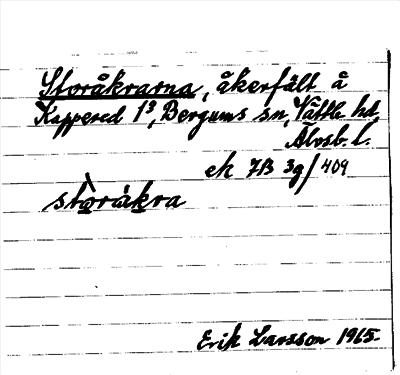 Storåkrarna, åkerfält å
Kappered 1³, Bergums sn, Vättle hd,
Älvsb. l.
ek 7B 3g/409
stòråkra
Erik Larsson 1965.